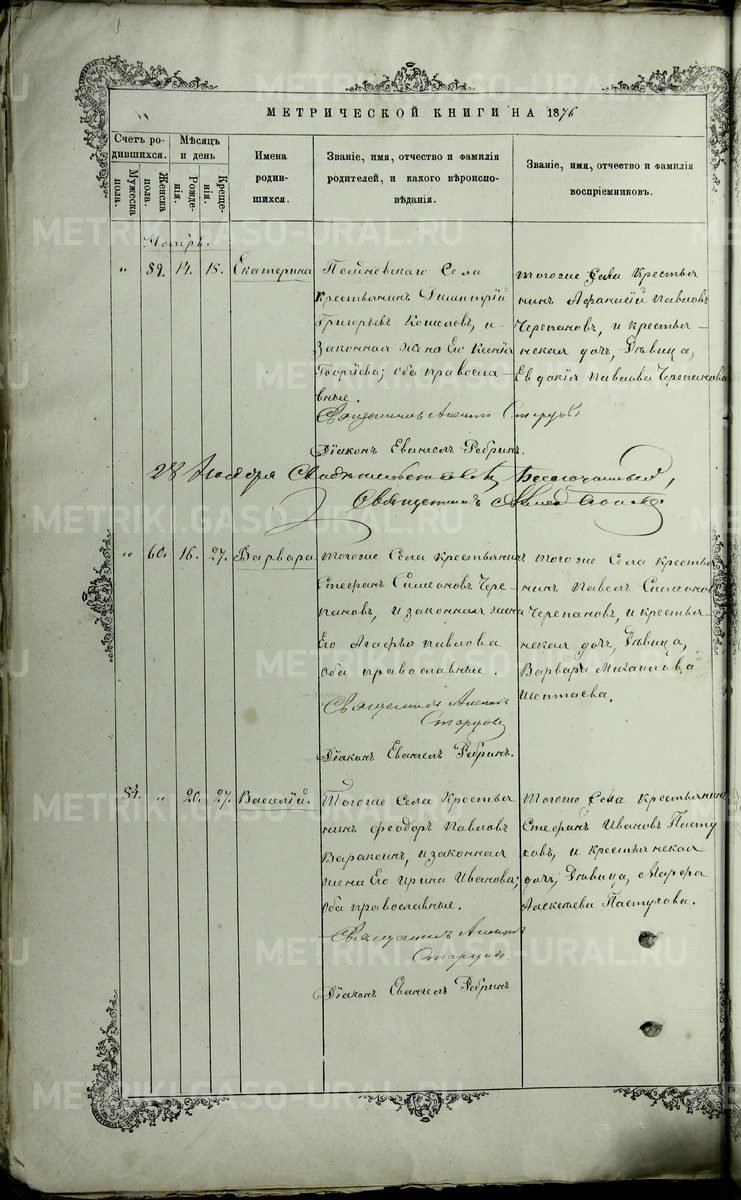 МЕТРИЧЕСКОЙ КНИГИ НА 1876
Счетъ ро-
дившихся.
Мѣсяцъ
и день
Мужеска
пола.
Женска
пола.
Рожде-
нія.
Креще-
нія.
Имена
родив-
шихся.
Званіе, имя, отчество и фамилія
родителей, и какого вѣроиспо-
вѣданія.
Званіе, имя, отчество и фамилія
воспріемниковъ.
Ноябрь.
" 59. 14. 15. Екатерина
Села
Крестьянинъ Димитрій
Григорьевъ и
Законная жена Его Ксенія
Георгіева; оба правосла-
вные.
Священникъ Старцовъ
Діаконъ Евангелъ Ребринъ.
тогоже Села Крестья
нинъ Афанасій Павловъ
Черепановъ, и крестья-
нская дочь, Дѣвица,
Евдокія Павлова Черепанова
28 Ноября Свидѣтельствовалъ Благочинный,
Священникъ
" 60. 16. 27. Варвара
тогоже Села Крестьянинъ
Стефанъ Симеоновъ Чере-
пановъ, и законная жена
Его Агафья Павлова
оба православные.
Священникъ
Старцовъ
Діаконъ Евангелъ Ребринъ.
тогоже Села Крестья
нинъ Павелъ Симеоновъ
Черепановъ, и крестья-
нская дочь, Дѣвица,
Варвара Михаилова
Шептаева.
54. " 20. 27. Василій.
Тогоже Села Крестья
нинъ Феодоръ Павловъ
Вараксинъ, и законная
жена Его Ирина Иванова;
оба православные.
Священникъ
Старцовъ.
Діаконъ Евангелъ Ребринъ
Тогоже Села Крестьянинъ
Стефанъ Ивановъ Пасту
ховъ, и крестьянская
дочь, Дѣвица, Марфа
Алексѣева Пастухова.
METRIKI.GASO-URAL.RU